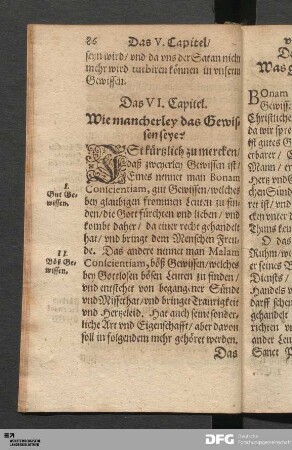 86 Das V. Capitel/
seyn wird/ vnd da vns der Satan nicht
mehr wird turbiren können in vnserm
Gewissen.
Das VI. Capitel.
Wie mancherley das Gewis-
sen seye?
ISt kürtzlich zu mercken/
daß zweyerley Gewissen ist/
Eines nennet man Bonam
Conscientiam, gut Gewissen/ welches
bey glaubigen frommen Leuten zu fin-
den/ die Gott fürchten vnd lieben/ vnd
kombt daher/ da einer recht gehandelt
hat/ vnd bringt dem Menschen Freu-
de. Das andere nennet man Malam
Conscientiam, böß Gewissen/ welches
bey Gottlosen bösen Leuten zu finden/
vnd entstehet von begangener Sünde
vnd Missethat/ vnd bringet Traurigkeit
vnd Hertzeleid. Hat auch seine sonder-
liche Art vnd Eigenschafft/ aber davon
soll in folgendem mehr gehöret werden.
Das
I.
Gut Ge-
wissen.
II.
Böß Ge-
wissen.
Was
Bonam
Gewiss
Christliche
da wir spre
fft es gut
erbarer/
Mann/
Hertz vnd
chen Sund
ret ist/
vnd
Thuns
O das
Ruhm/
er seines
Diensts/
Handels
darff
gehandelt
richten
Leuten
Sanct P
DFG Deutsche
Forschungsgemeinschaft